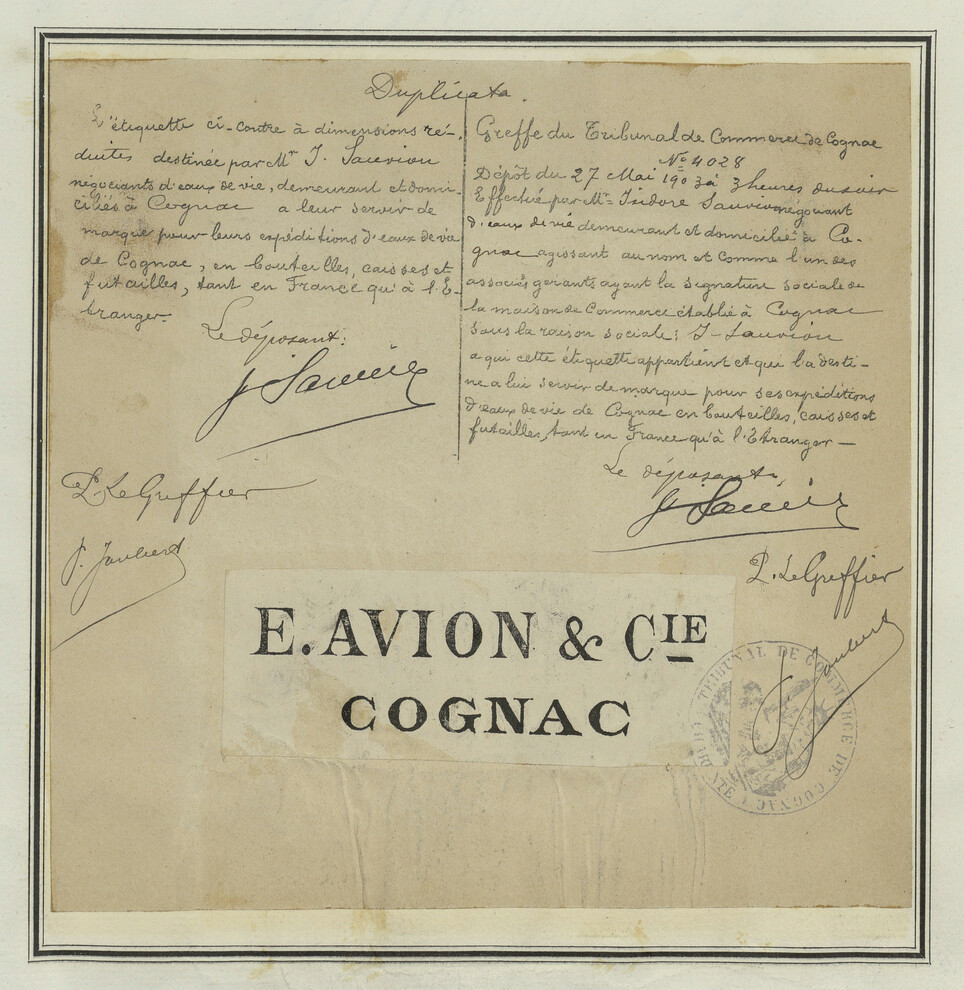 Duplicata.
L'étiquette ci-contre à dimensions ré-
duites destinée par Mr J. Sauvion
négociants d'eaux de vie, demeurant et domi-
ciliés à Cognac a leur servir de
marque pour leurs expéditions d'eaux de vie
de Cognac, en bouteilles, caisses et
futailles, tant en France qu'à l'E-
tranger.
Le déposant:
J Sauvion
P. Le Greffier
J. Joubert
Greffe du Tribunal de Commerce de Cognac
No 4028
Dépôt du 27 Mai 1903 à 3 heures du soir
Effectué par Mr Isidore Sauvion négociant
d'eaux de vie demeurant et domicilié à Co-
gnac agissant au nom et comme l'un des
associés gérants ayant la signature sociale de
la maison de Commerce établie à Cognac
sous la raison sociale: J. Sauvion
a qui cette étiquette appartient et qui l'a desti-
ne a lui servir de marque pour ses expéditions
d'eaux de vie de Cognac en bouteilles, caisses et
futailles, tant en France qu'à l'Etranger —
Le déposant:
J Sauvion
P. Le Greffier
J Joubert
E. AVION & CIE
COGNAC
TRIBUNAL DE COMMERCE DE COGNAC
CHARENTE